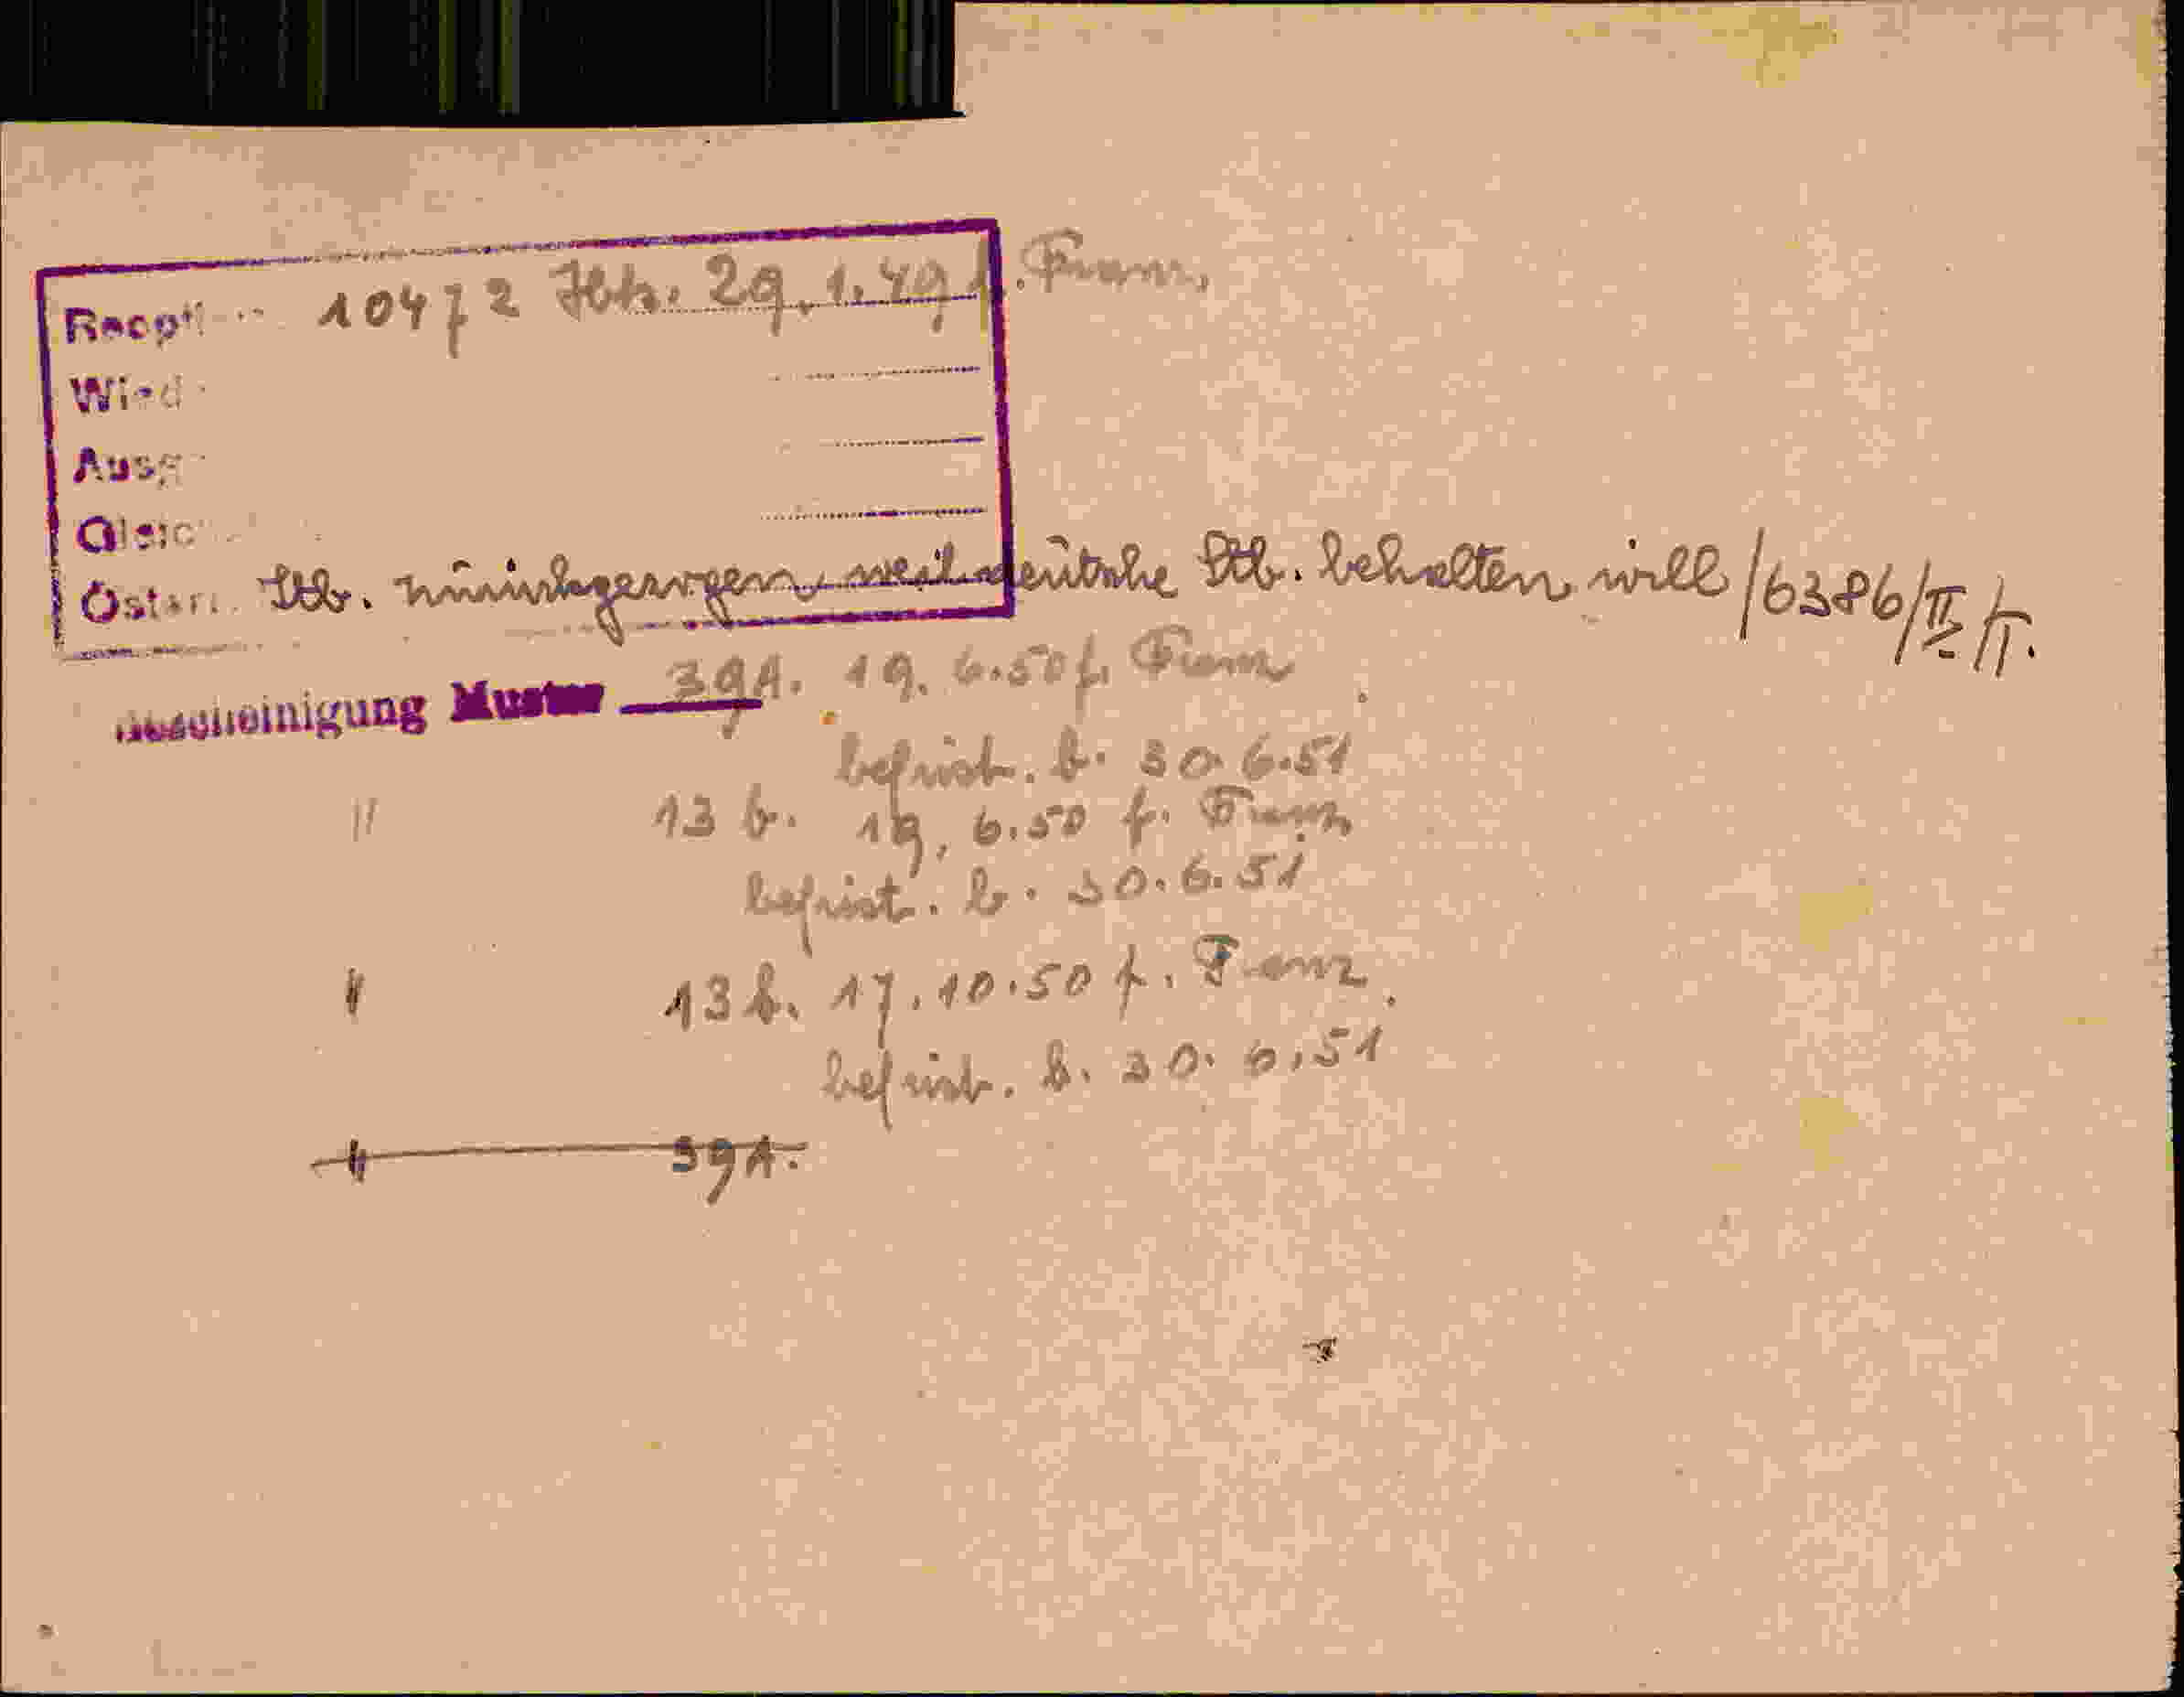 10472 Stb. 29.1.49 f. Franz.
Wied
Ausg
Gleic
Österr. Stb. zurückgezogen, weil deutsche Stb. behalten will /6386/II/I.
Bescheinigung Muster 39A. 19.6.50 f. Franz
befrist. b. 30.6.51
" 13 b. 19.6.50 f. Franz
befrist. b. 30.6.51
" 13 b. 17.10.50 f. Franz.
befrist. b. 30.6.51
" 39A.